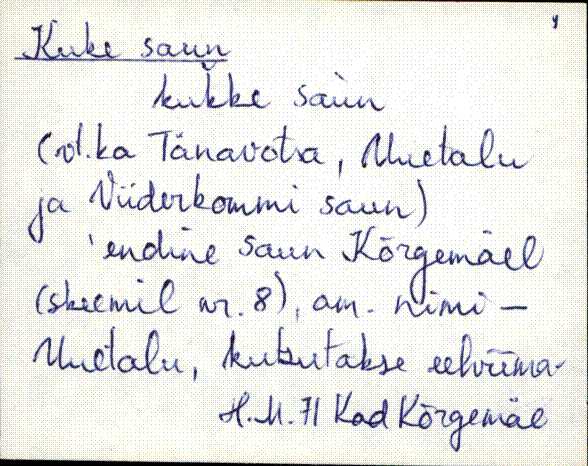 Kuke saun
kukke saùn
(vt. ka Tänavotsa, Uuetalu
ja Viiderkommi saun)
'endine saun Kõrgemäel
(skeemil nr. 8), am. nimi –
Uuetalu, kutsutakse eelviima-
H.M. 71 Kad Kõrgemäe